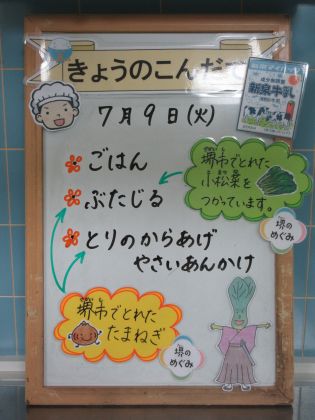 きょうのこんだて
7月9日(火)
ごはん
ぶたじる
とりのからあげ
やさいあんかけ
堺市でとれた
小松菜を
つかっています。
堺の
めぐみ
堺市でとれた
たまねぎ
堺の
めぐみ
成分無調整
新泉牛乳